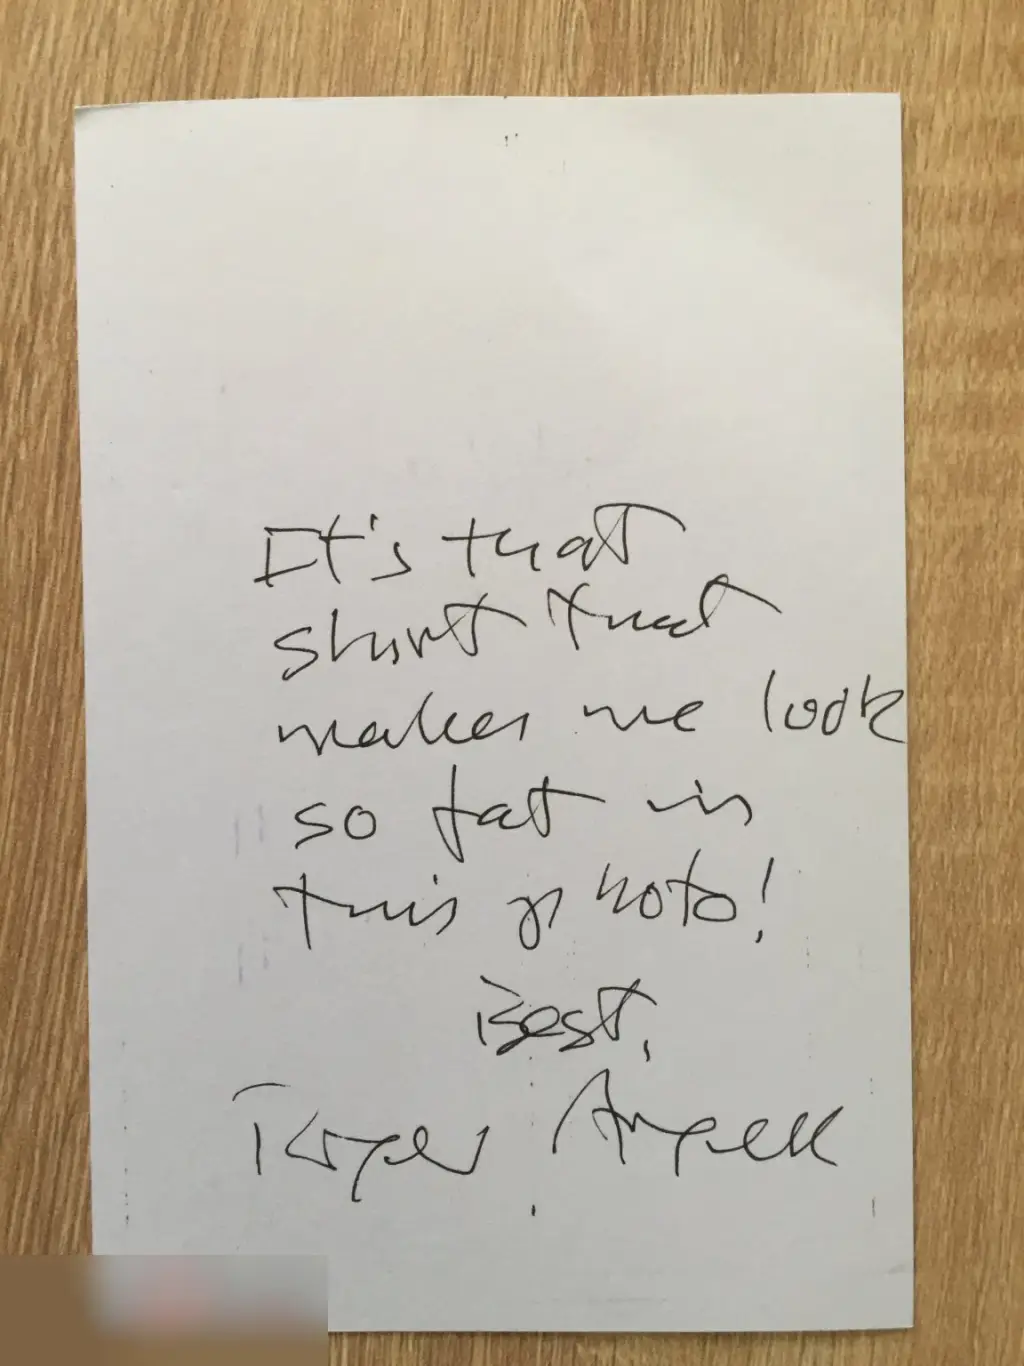 It's that
shirt that
makes me look
so fat in
this photo!
Best,
Roger Angell